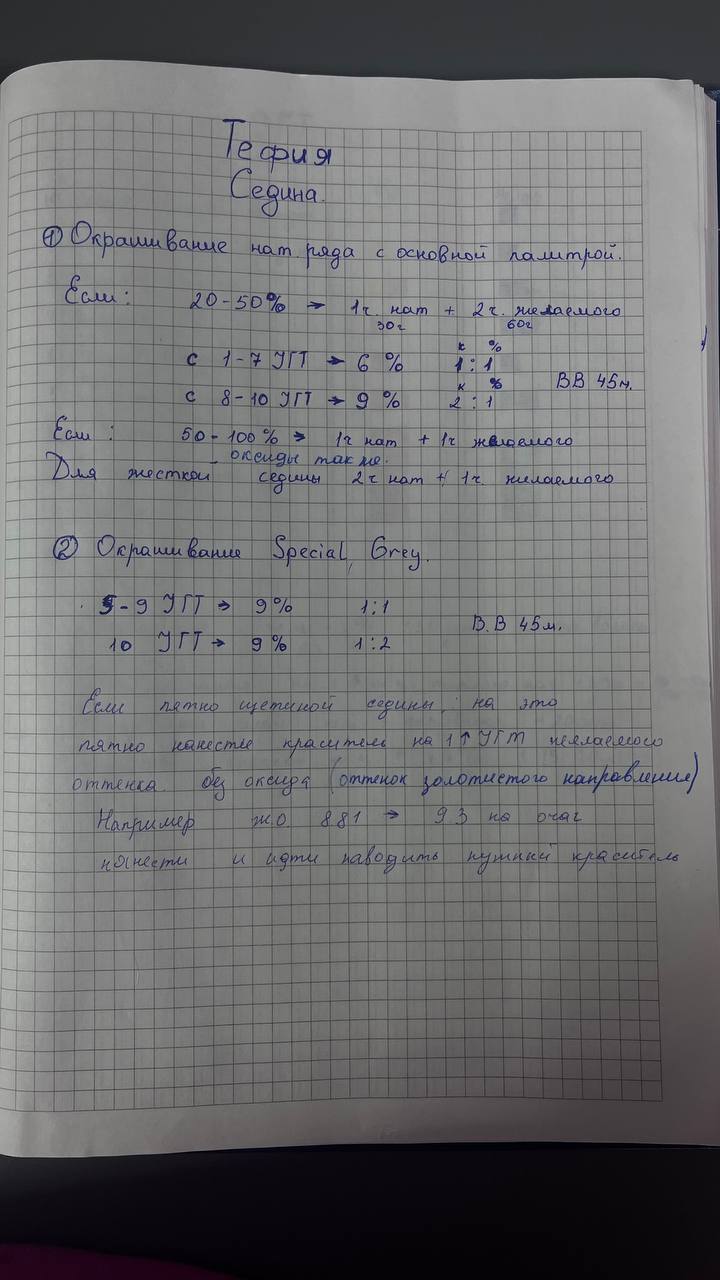 Тефия
Седина.
① Окрашивание нат. ряда с основной палитрой.
Если: 20-50% → 1ч. нат + 2ч. желаемого
30г 60г
к %
с 1-7 УГТ → 6 % 1:1
к %
с 8-10 УГТ → 9 % 2:1 ВВ 45м.
Если: 50-100% → 1ч нат + 1ч желаемого
оксиды так же.
Для жесткой седины 2ч нат + 1ч. желаемого
② Окрашивание Special Grey.
5-9 УГТ → 9% 1:1
В.В 45м.
10 УГТ → 9% 1:2
Если пятно щетиной седины, на это
пятно нанести краситель на 1↑ УГТ желаемого
оттенка без оксида (оттенок золотистого направления)
Например ж.о 881 → 93 на очаг
нанести и идти наводить нужный краситель